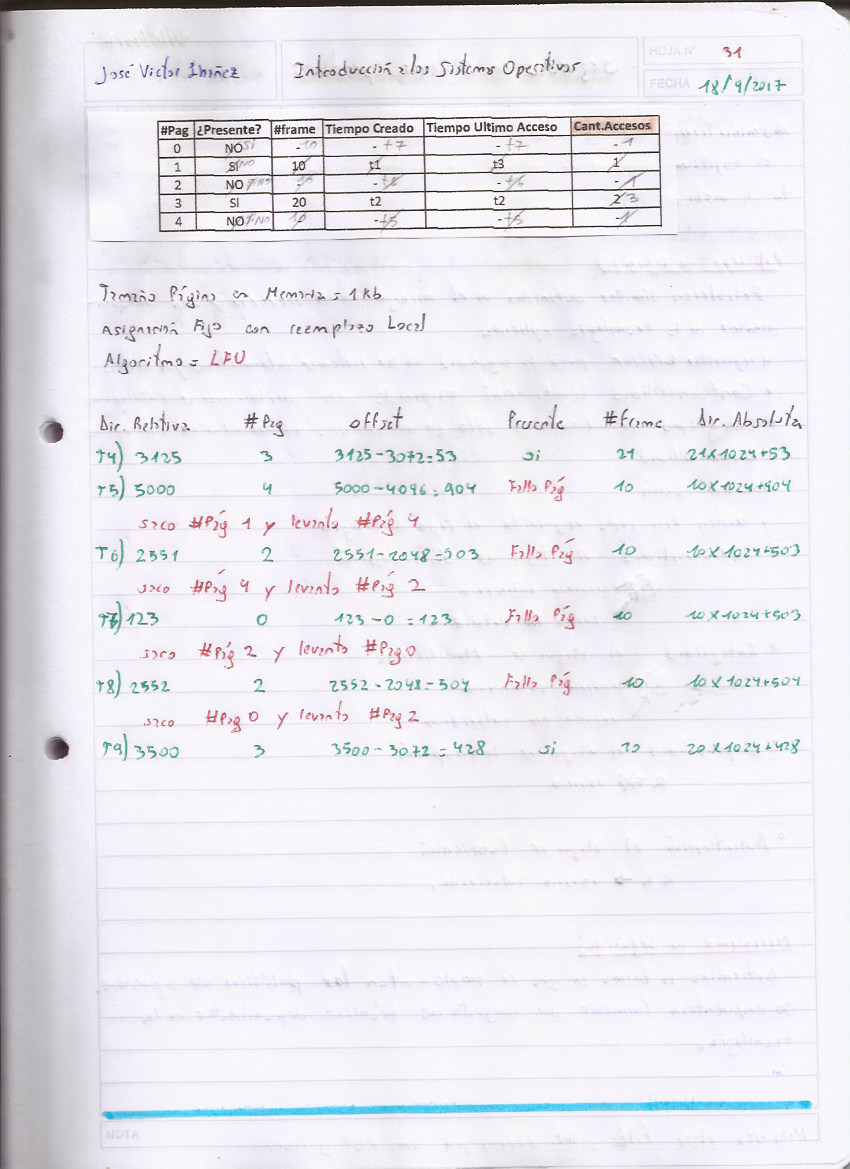 HOJA N° 31
José Victor Ibiñez Introducción a los Sistemas Operativos
FECHA 18/9/2017
#Pag ¿Presente? #frame Tiempo Creado Tiempo Ultimo Acceso Cant.Accesos
0 NO SI - 10 - t7 - t7 - 1
1 SI NO 10 t1 t3 1
2 NO - - t6 - t6 - 1
3 SI 20 t2 t2 2 3
4 NO 10 - t5 - t5 - 1
Tamaño Página en Memoria = 1 Kb
Asignación Fijo con reemplazo Local
Algoritmo = LFU
Dir. Relativa #Pag offset Presente #Frame Dir. Absoluta
T4) 3125 3 3125-3072=53 si 21 21x1024+53
T5) 5000 4 5000-4096=904 Fallo Pág 10 10x1024+904
saco #Pág 1 y levanto #Pág 4
T6) 2551 2 2551-2048=503 Fallo Pág 10 10x1024+503
saco #Pág 4 y levanto #Pág 2
T7) 123 0 123-0=123 Fallo Pág 10 10x1024+503
saco #Pág 2 y levanto #Pag 0
T8) 2552 2 2552-2048-504 Fallo Pág 10 10x1024+504
saco #Pag 0 y levanto #Pag 2
T9) 3500 3 3500-3072=428 si 20 20x1024+428
NOTA